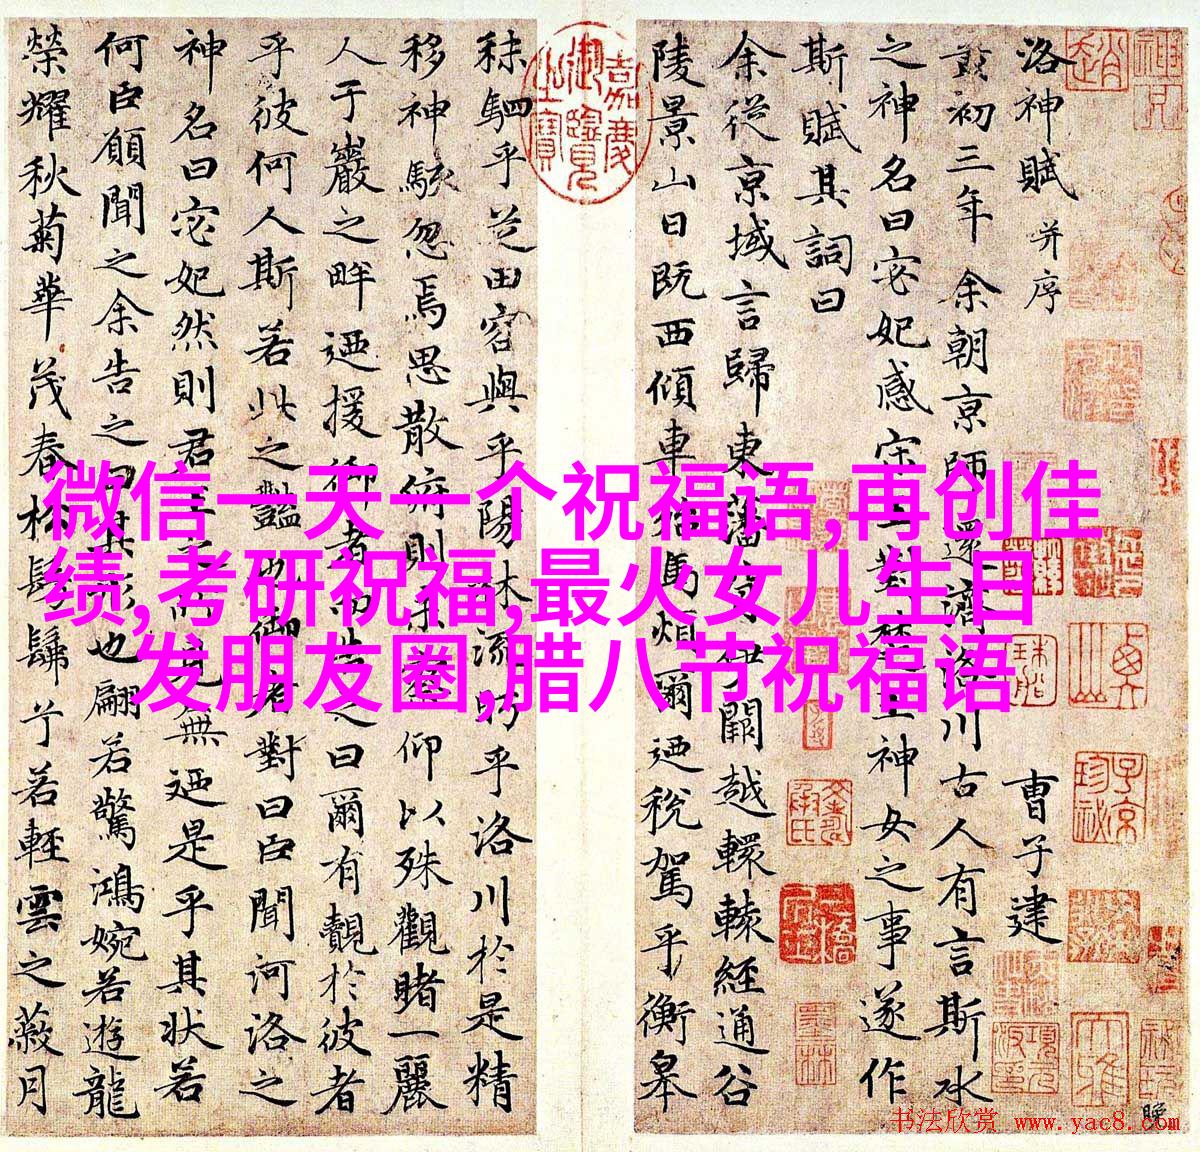 微信一天一个祝福语,再创佳
绩,考研祝福,最火女儿生日
发朋友圈,腊八节祝福语
洛神賦 并序 曹子建
黃初三年余朝京師還濟洛川古人有言斯水
之神名曰宓妃感宋玉對楚王神女之事遂作
斯賦其詞曰
余從京域言歸東藩背伊闕越轘轅經通谷
陵景山日既西傾車殆馬煩爾迺稅駕乎衡皋
嘉慶御覽之寶
秣駟乎芝田容與乎陽林流眄乎洛川於是精
移神駭忽焉思散俯則未察仰以殊觀睹一麗
人于巖之畔迺援御者而告之曰爾有覿於彼者
乎彼何人斯若此之豔也御者對曰臣聞河洛之
神名曰宓妃然則君王之所見無迺是乎其状若
何臣願聞之余告之曰其形也翩若驚鴻婉若遊龍
榮耀秋菊華茂春松髣髴兮若輕雲之蔽月
书法欣赏 www.yac8.com